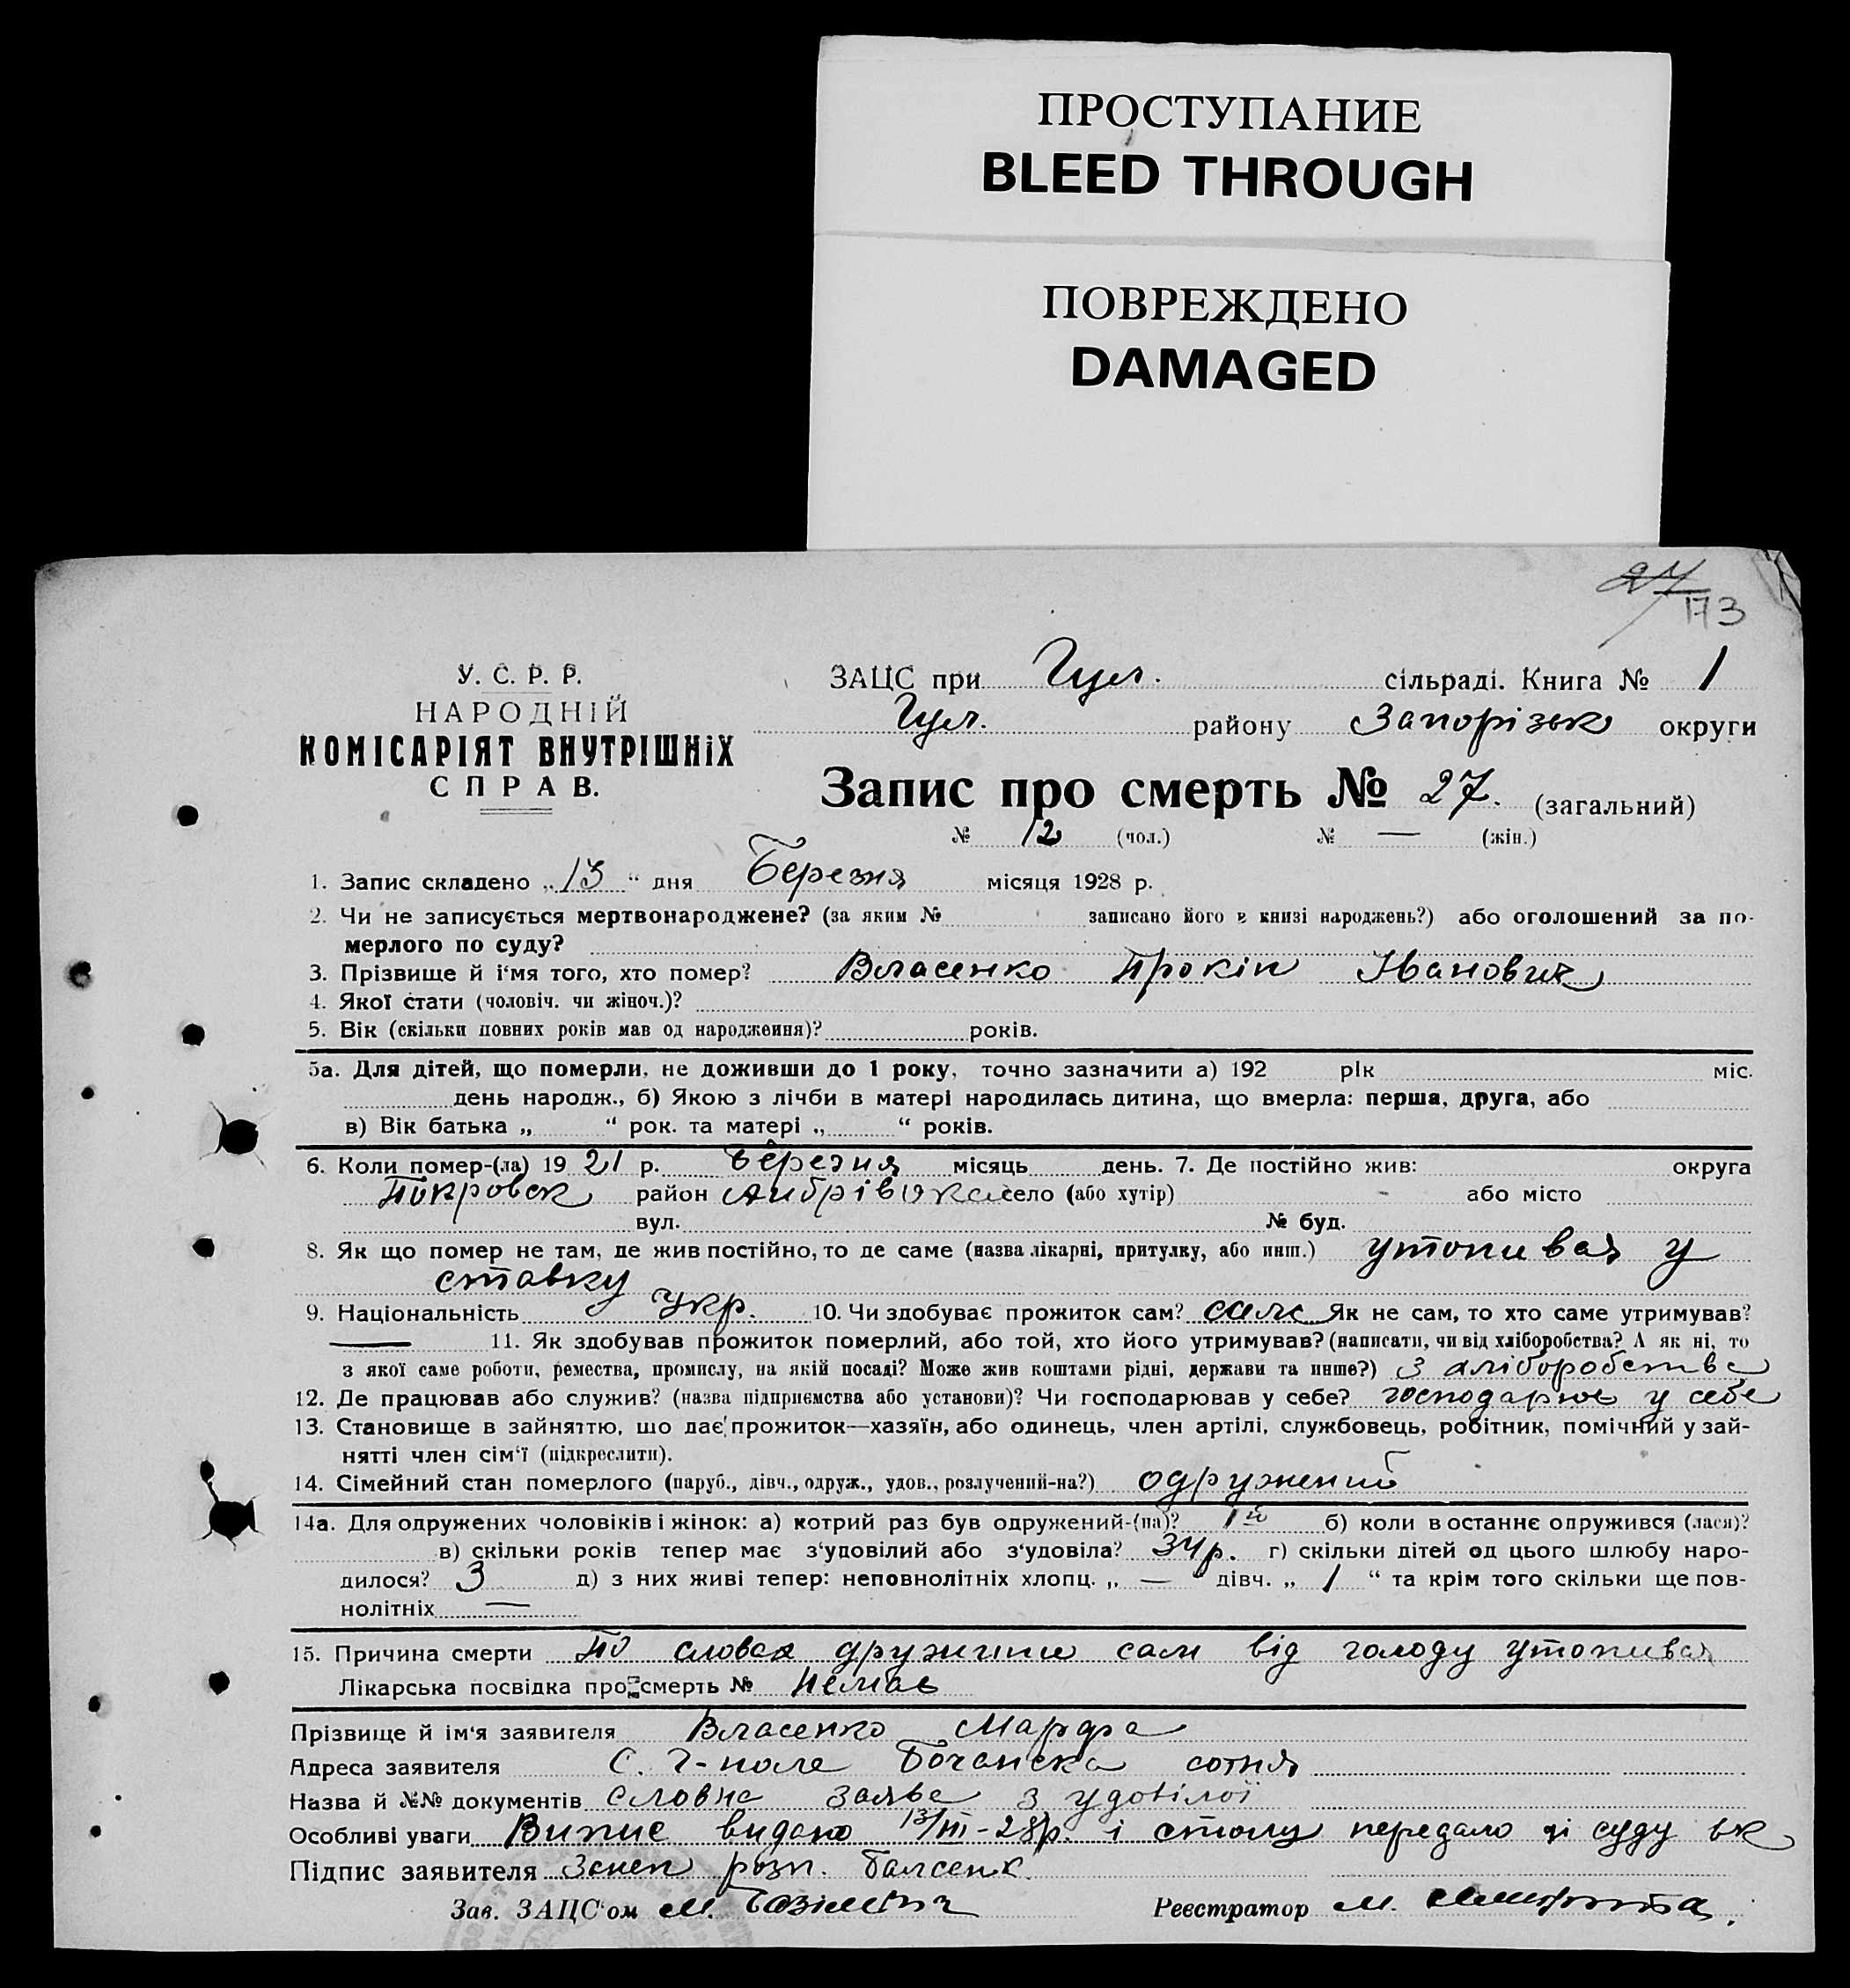 ПРОСТУПАНИЕ
BLEED THROUGH
ПОВРЕЖДЕНО
DAMAGED
27
173
У. С. Р. Р.
НАРОДНІЙ
КОМІСАРІЯТ ВНУТРІШНІХ
СПРАВ.
ЗАЦС при Гул. сільраді. Книга № 1
Гул. району Запорізьк округи
Запис про смерть № 27. (загальний)
№ 12 (чол.) № — (жін.)
1. Запис складено „13“ дня Березня місяця 1928 р.
2. Чи не записується мертвонароджене? (за яким № записано його в книзі народжень?) або оголошений за по-
мерлого по суду?
3. Прізвище й і‘мя того, хто помер? Власенко Прокіп Іванович
4. Якої стати (чоловіч. чи жіноч.)?
5. Вік (скільки повних років мав од народження)? років.
5а. Для дітей, що померли, не доживши до 1 року, точно зазначити а) 192 рік міс.
день народж., б) Якою з лічби в матері народилась дитина, що вмерла: перша, друга, або
в) Вік батька „ “ рок. та матері „ “ років.
6. Коли помер-(ла) 1921 р. березня місяць день. 7. Де постійно жив: округа
Покровськ район Андрівка село (або хутір) - або місто
вул. № буд.
8. Як що помер не там, де жив постійно, то де саме (назва лікарні, притулку, або инш.) утопився у
ставку
9. Національність Укр. 10. Чи здобуває прожиток сам? сам Як не сам, то хто саме утримував?
— 11. Як здобував прожиток померлий, або той, хто його утримував? (написати, чи від хліборобства? А як ні, то
з якої саме роботи, ремества, промислу, на якій посаді? Може жив коштами рідні, держави та инше?) З хліборобства
12. Де працював або служив? (назва підприємства або установи)? Чи господарював у себе? господарює у себе
13. Становище в зайняттю, що дає прожиток—хазяїн, або одинець, член артілі, службовець, робітник, помічний у зай-
нятті член сім‘ї (підкреслити).
14. Сімейний стан померлого (паруб., дівч., одруж., удов., розлучений-на?) одружений
14а. Для одружених чоловіків і жінок: а) котрий раз був одружений-(на)? 1й б) коли в останнє одружився (лася)?
в) скільки років тепер має з‘удовілий або з‘удовіла? 34 р. г) скільки дітей од цього шлюбу наро-
дилося? 3 д) з них живі тепер: неповнолітніх хлопц. „ — “ дівч. „ 1 “ та крім того скільки ще пов-
нолітніх —
15. Причина смерти По словах дружини сам від голоду утопився
Лікарська посвідка про смерть № Немає
Прізвище й ім‘я заявителя Власенко Марфа
Адреса заявителя С. Г-поле сотня
Назва й №№ документів Словна заява з удовілої
Особливі уваги Випис видано 13/III-28р. і передано суду
Підпис заявителя розп.
Зав. ЗАЦС‘ом М.
Реєстратор М.